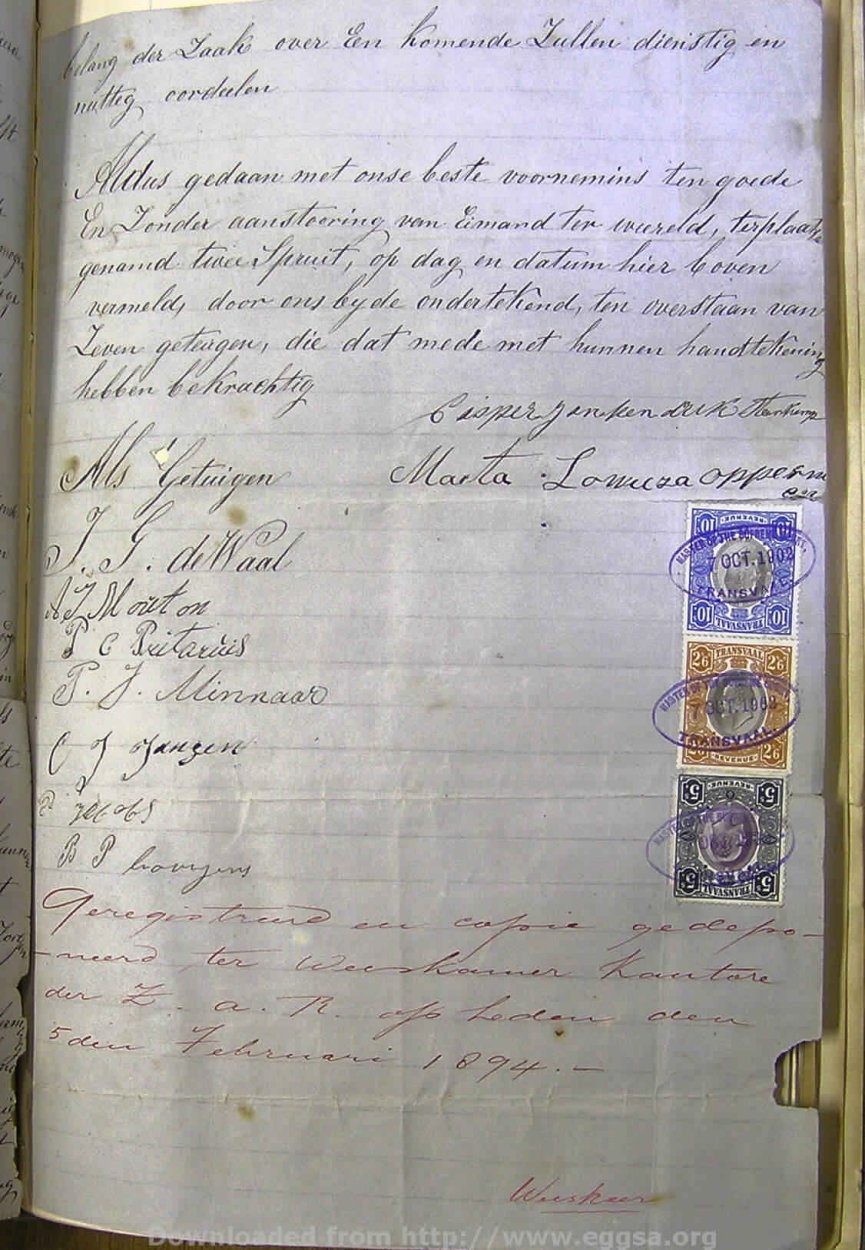 belang der Zaak over Een komende Zullen dienstig en
nuttig oordeelen
Aldus gedaan met onse beste voornemins ten goede
En Zonder aanstooring van Eimand ter weereld, terplaatse
genamd twee Spruit, op dag en datum hier boven
vermeld, door ons beyde ondertekend, ten overstaan van
Zeven geteugen, die dat mede met hunnen handtekening
hebben bekrachtig
Casper Jan Hendrik
Als Getuigen
Marta Lowieza opperm
en
J. G. de Waal
A J Mouton
P C Pritorius
P. J. Minnaar
C J Janzen
B P
Geregistreerd en copie gedepo-
-neerd ter Weeskamer Kantore
der Z. a. R. op heden den
5den Februari 1894.-
Weesheer
10 REVENUE 10
MASTER OF THE SUPREME COURT,
7 OCT. 1902
TRANSVAAL
10 TRANSVAAL 10
2/6 TRANSVAAL 2/6
7 OCT. 1902
TRANSVAAL
2/6 REVENUE 2/6
5 5
5 TRANSVAAL 5
Downloaded from http://www.eggsa.org